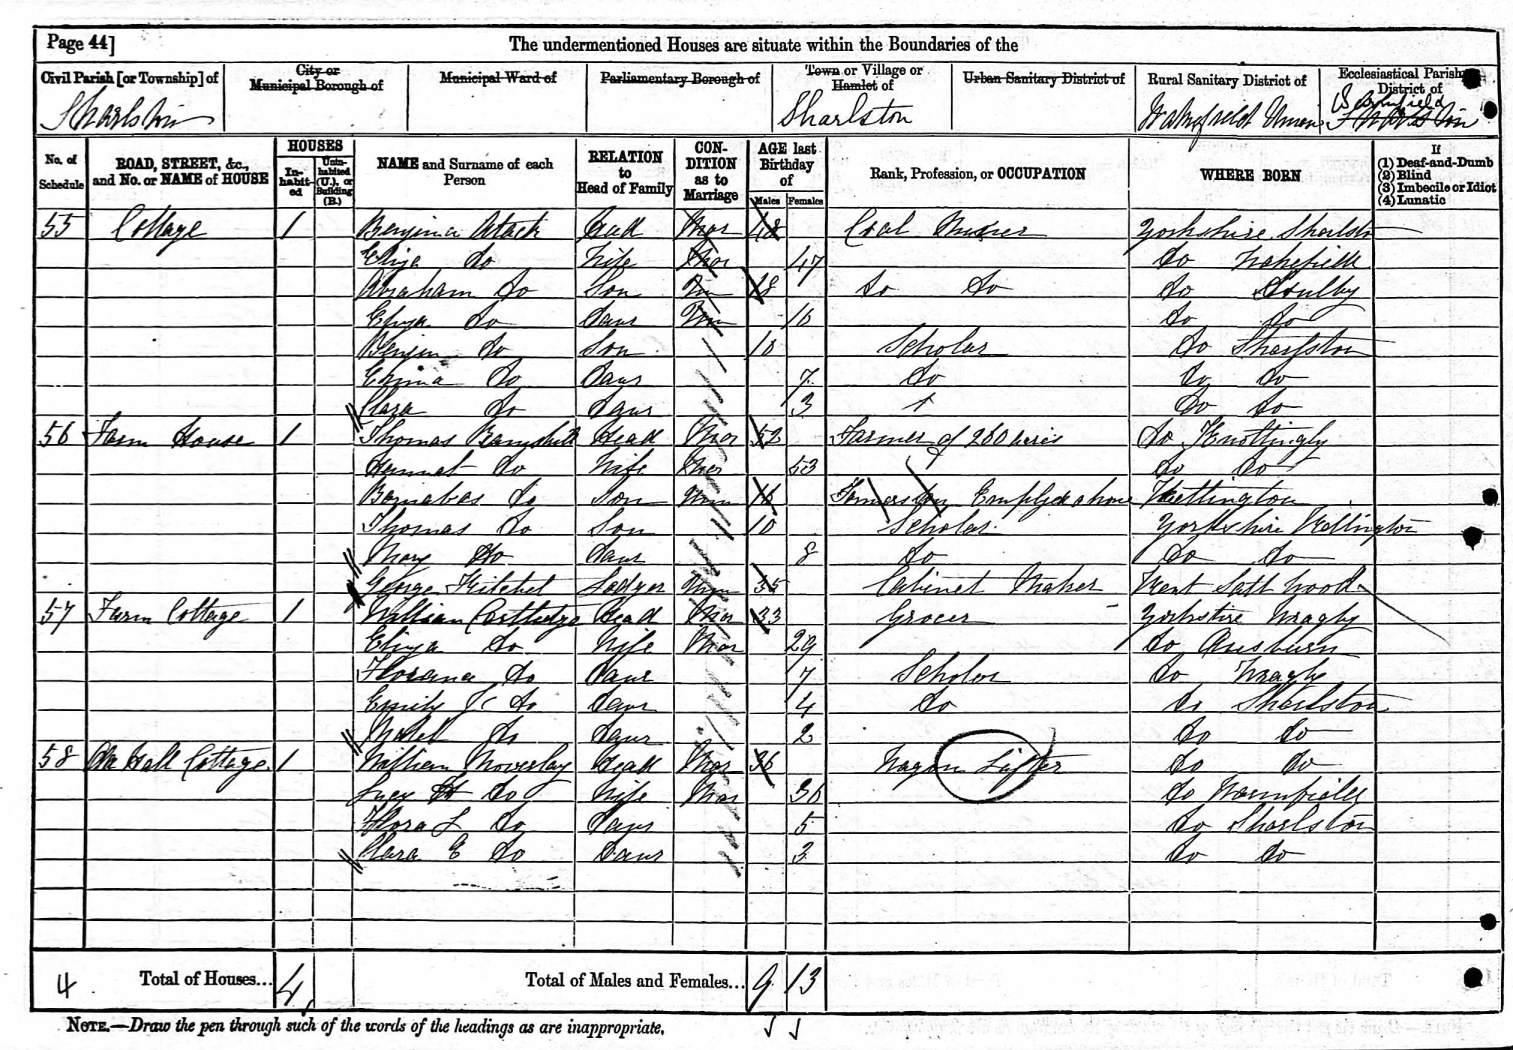 Page 44]
The undermentioned Houses are situate within the Boundaries of the
Civil Parish [or Township] of
City or Municipal Borough of
Municipal Ward of
Parliamentary Borough of
Town or Village or Hamlet of
Urban Sanitary District of
Rural Sanitary District of
Ecclesiastical Parish or District of
Sharlston
Sharlston
Wakefield Union
Warmfield
No. of Schedule
ROAD, STREET, &c., and No. or NAME of HOUSE
HOUSES
In-habit-ed
Unin-habited (U.), or Building (B.)
NAME and Surname of each Person
RELATION to Head of Family
CON-DITION as to Marriage
AGE last Birthday of
Males
Females
Rank, Profession, or OCCUPATION
WHERE BORN
If
(1) Deaf-and-Dumb
(2) Blind
(3) Imbecile or Idiot
(4) Lunatic
55 Cottage 1 Atack Head Mar 48 Coal Miner Yorkshire Sharlston
Eliza Do Wife Mar 47 Do Wakefield
Abraham Do Son Un 18 Do Do Do
Eliza Do Daur Un 16 Do Do
Benjm Do Son 10 Scholar Do Sharlston
Emma Do Daur 7 Do Do Do
Clara Do Daur 3 Do Do
56 Farm House 1 Thomas Head Mar 52 Farmer of 260 acres Do Knottingly
Hannat Do Wife Mar 53 Do Do
Barnabas Do Son Unm 16 Farmers Son Employd at home Kellington
Thomas Do Son 10 Scholar Yorkshire Kellington
Mary Do Daur 8 Do Do Do
George Kitchel Lodger Unm 35 Cabinet Maker Kent
57 Farm Cottage 1 William Head Mar 33 Grocer Yorkshire Wragby
Eliza Do Wife Mar 29 Do
Florana Do Daur 7 Scholar Do Wragby
Emily Do Daur 4 Do Do Sharlston
Do Daur 2 Do Do
58 Old Hall Cottage 1 William Moverlay Head Mar 36 Wagon Lifter Do Do
Lucy Do Wife Mar 36 Do Warmfield
Flora L Do Daur 5 Do Sharlston
Clara E Do Daur 3 Do Do
4 Total of Houses... 4 Total of Males and Females... 9 13
NOTE.—Draw the pen through such of the words of the headings as are inappropriate.